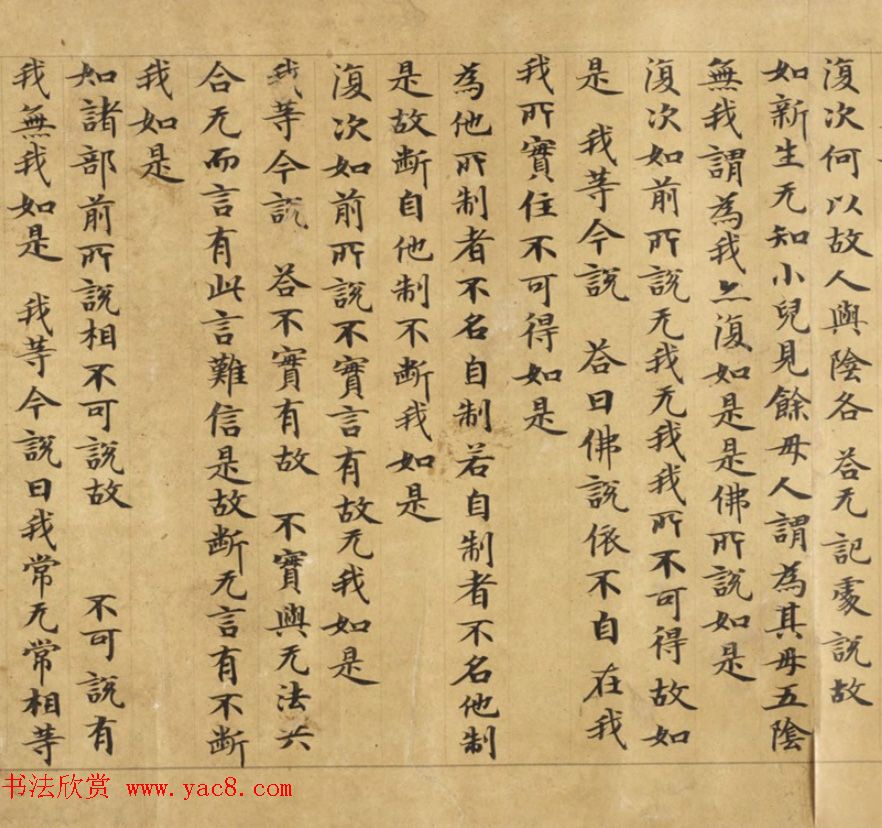 復次何以故人與陰各 荅无記處說故
如新生无知小兒見餘母人謂為其母五陰
無我謂為我亦復如是是佛所說如是
復次如前所說无我无我我所不可得故如
是 我等今說 荅曰佛說依不自在我
我所實住不可得如是
為他所制者不名自制若自制者不名他制
是故斷自他制不斷我如是
復次如前所說不實言有故无我如是
我等今說 荅不實有故 不實與无法共
合无而言有此言難信是故斷无言有不斷
我如是
如諸部前所說相不可說故 不可說有
我無我如是 我等今說曰我常无常相等
书法欣赏 www.yac8.com